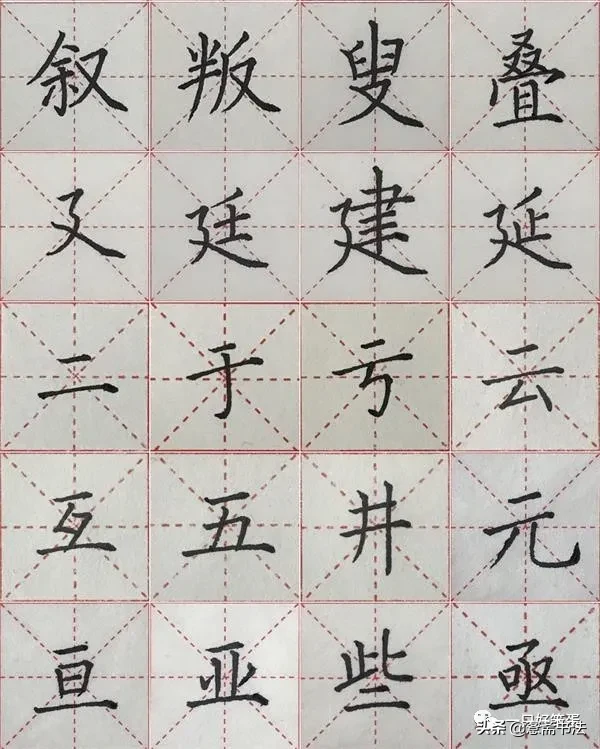 叙 叛 叟 叠
廴 廷 建 延
二 于 亏 云
互 五 井 元
亘 亚 些 亟
头条 斋书法